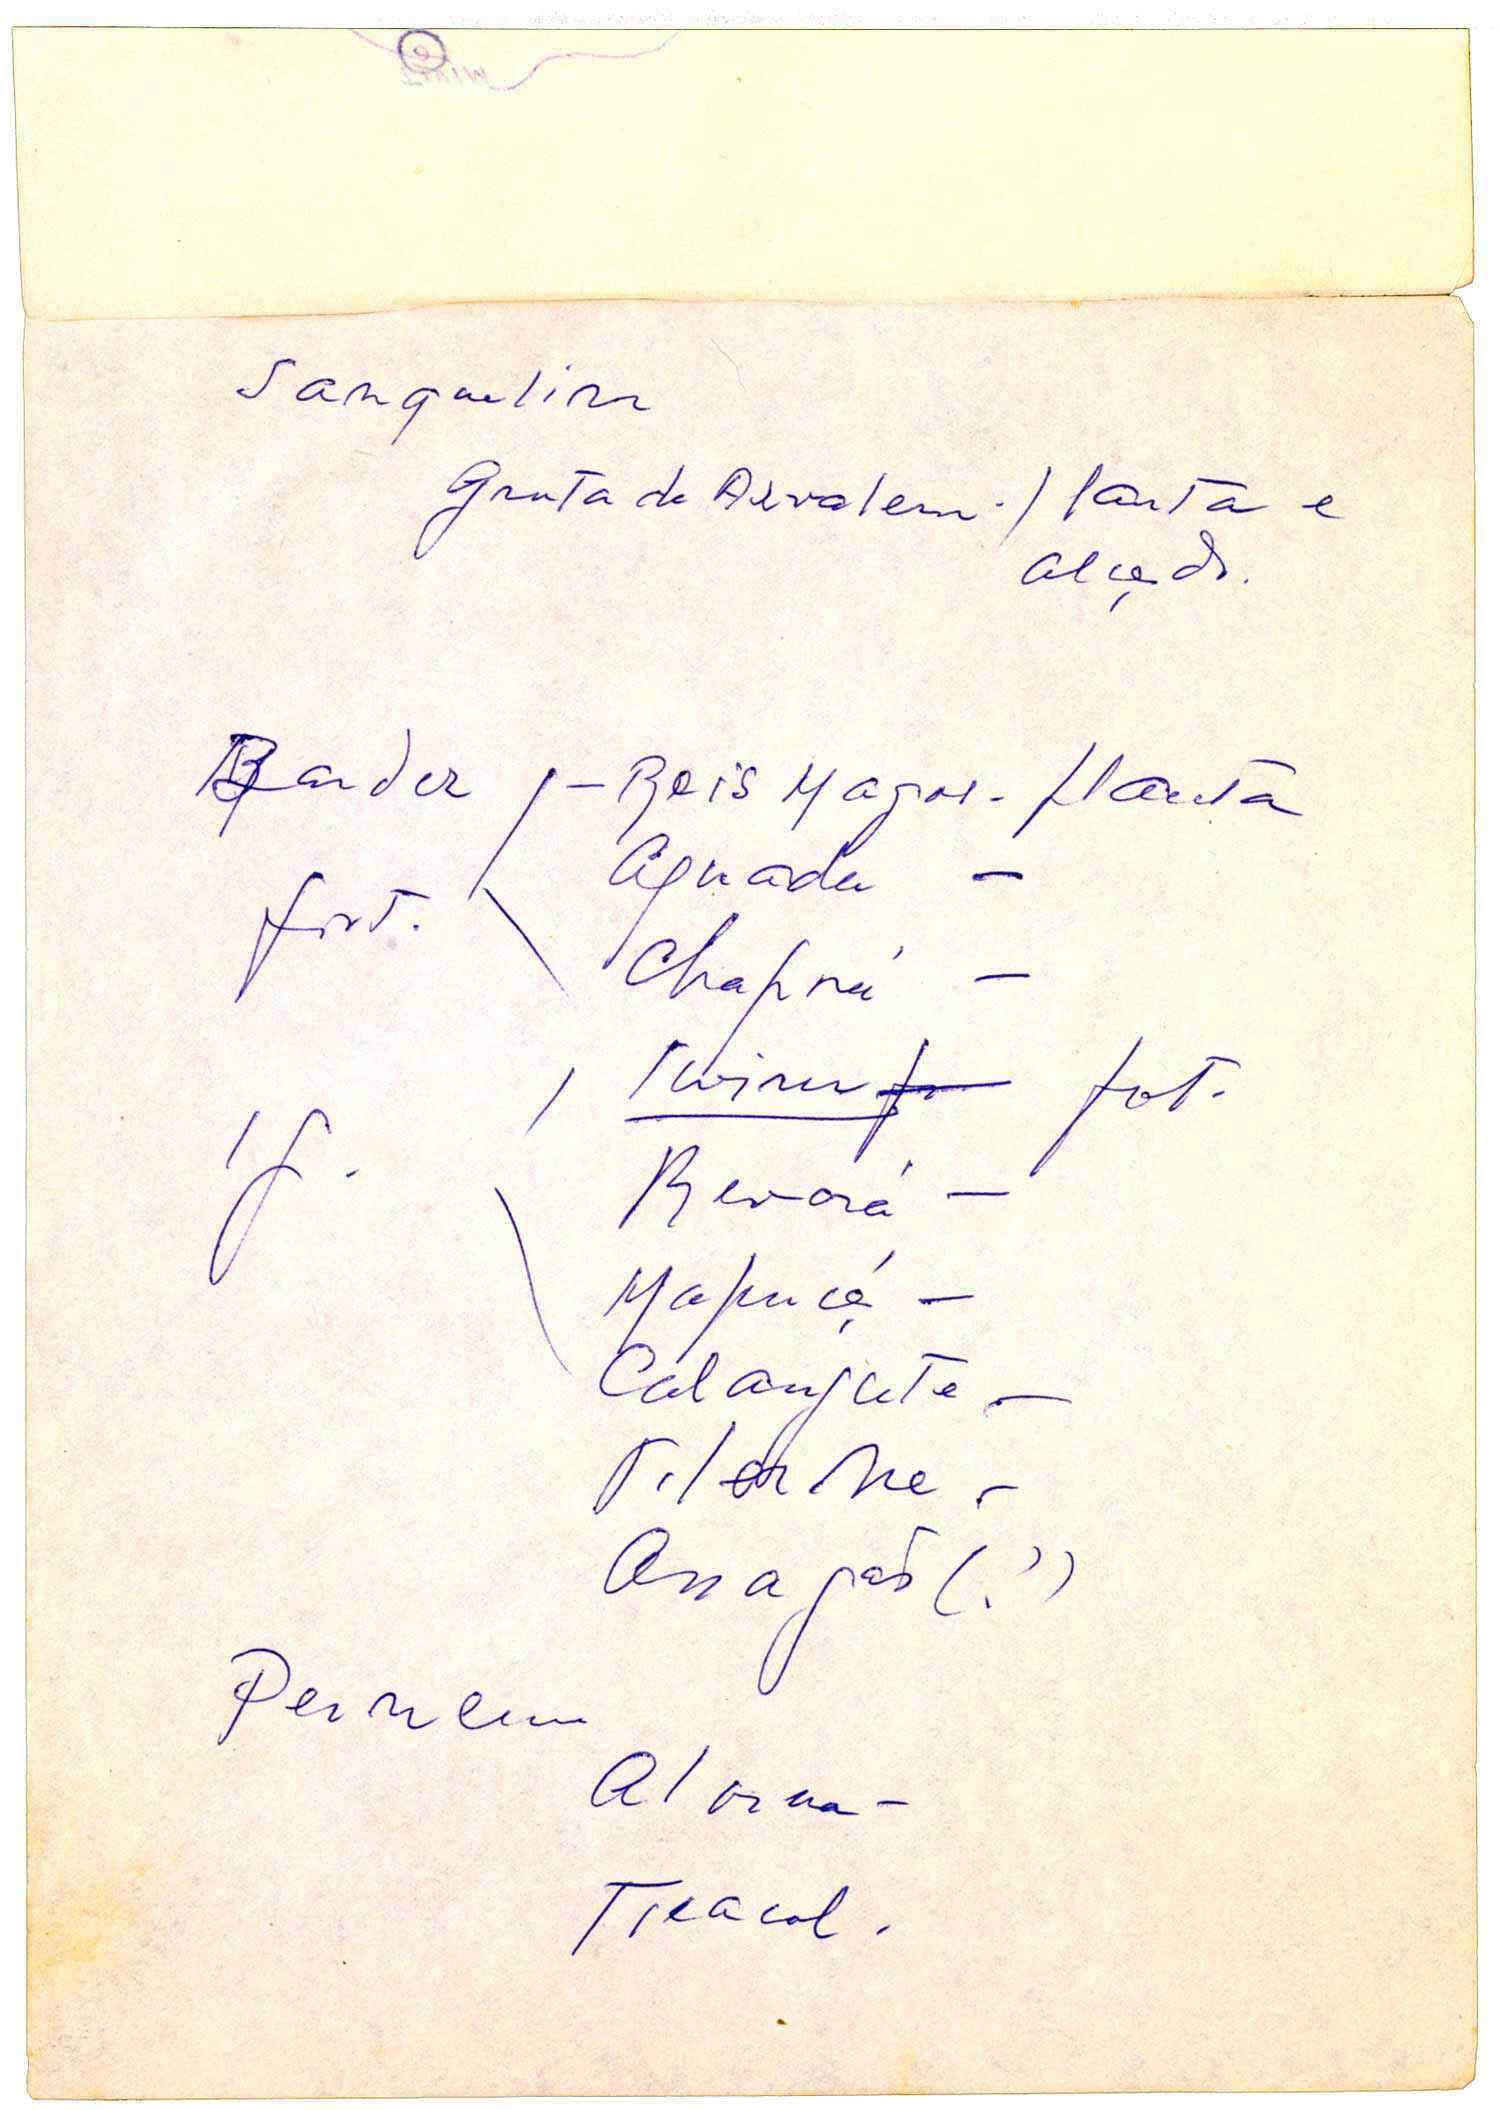 Sanquelim
Gruta de Arvalem - planta e
alçado.
Bardez - Reis Magos - planta
fort. Aguada -
Chaporá -
Ig. Tivim fot.
Revorá -
Mapuçá -
Calangute -
Pilerne -
Assagão (?)
Pernem
Alorna -
Tiracol.